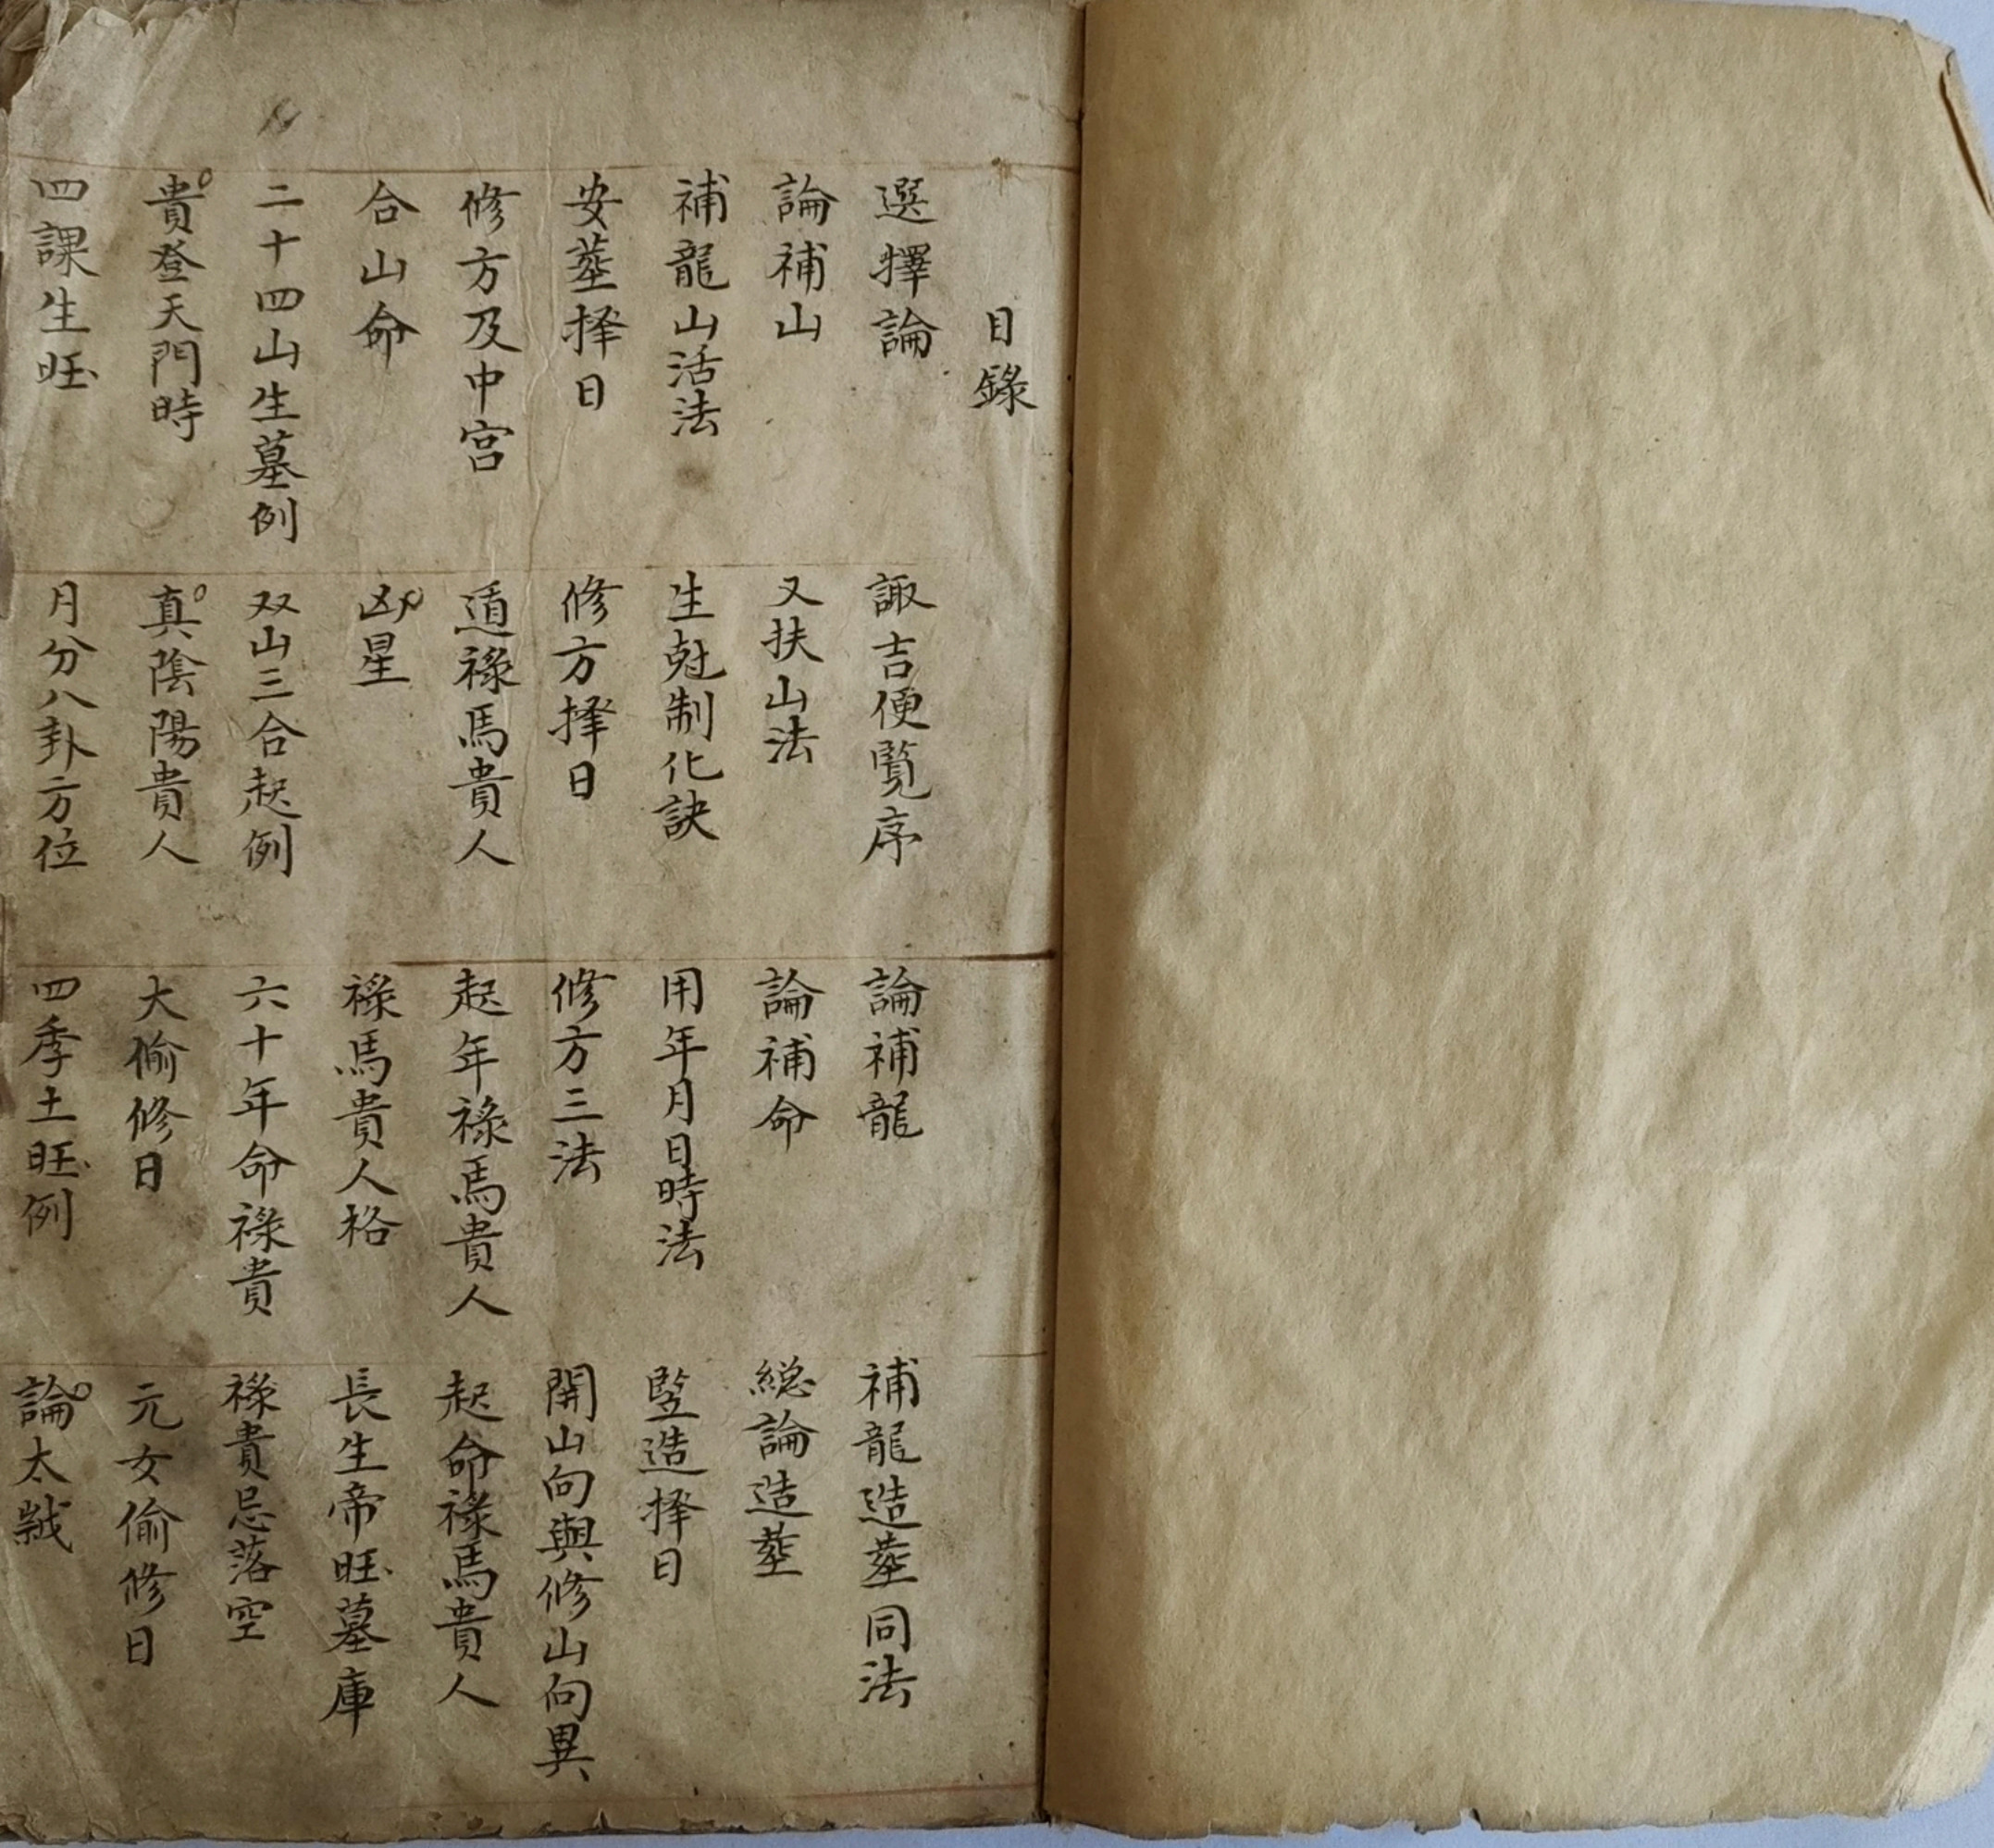 目錄
選擇論
諏吉便覧序
論補龍
補龍造塟同法
論補山
又扶山法
論補命
総論造塟
補龍山活法
生尅制化訣
用年月日時法
竪造择日
安塟择日
修方择日
修方三法
開山向與修山向異
修方及中宫
遁祿馬貴人
起年祿馬貴人
起命祿馬貴人
合山命
凶星
祿馬貴人格
長生帝旺墓庫
二十四山生墓例
双山三合起例
六十年命祿貴
祿貴忌落空
貴登天門時
真陰陽貴人
大偷修日
元女偷修日
四課生旺
月分八卦方位
四季土旺例
論太歲